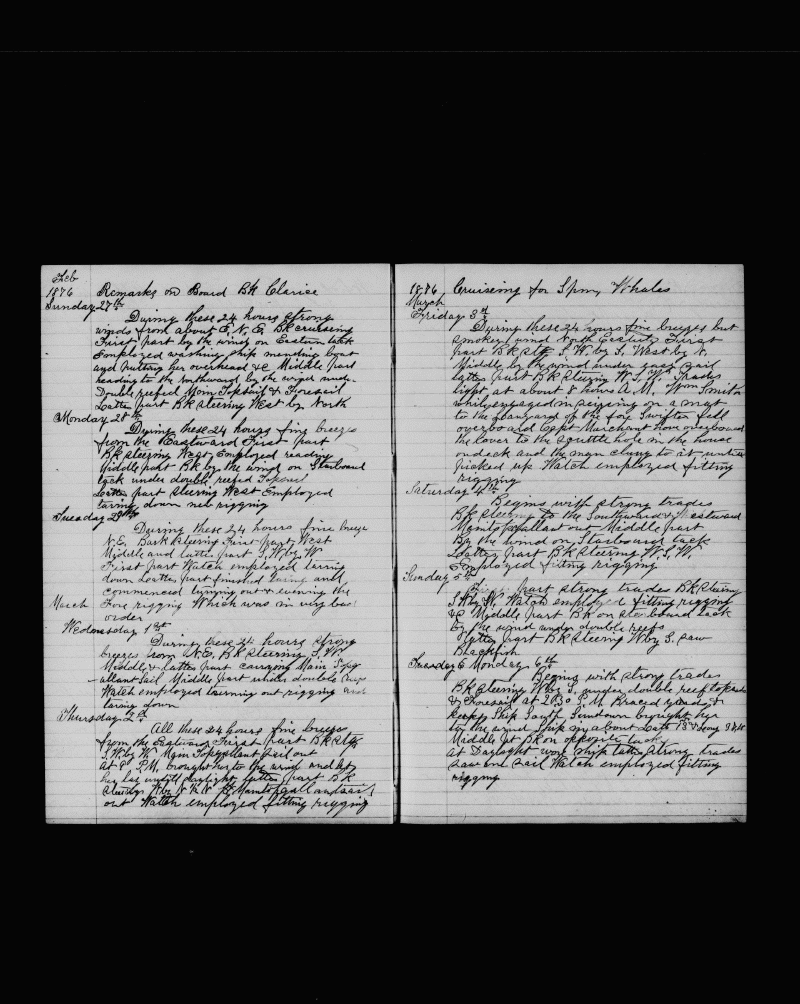 Feb
1876 Remarks on Board Bk Clarice
Sunday 27th
During these 24 hours strong
winds from about E, N, E, Bk cruiseing
First part by the wind on Eastern tack
Employed washing ship mending boat
and putting her overhead &c Middle part
heading to the northward by the wind under
Double reefed Main Topsail & Foresail
Latter part Bk steering West by North
Monday 28th
During these 24 hours fine breeze
from the Eastward First part
Bk steering West Employed reading
Middle part Bk by the wind on Starboard
tack under double reefed Topsail
Latter part steering West Employed
taring down new rigging
Tuesday 29th
During these 24 hours fine breeze
N.E. Bark steering First part West
Middle and latter part S, W by, W
First part Watch employed taring
down Latter part finished taring and
commenced turning out & evening the
March Fore rigging Which was in very bad
order
Wednesday 1st
During these 24 hours strong
breezes from N.E. Bk steering S, W.
Middle & latter part carrying Main Topg
allant sail Middle part under double reefs
Watch employed turning out rigging and
taring down
Thursday 2nd
All these 24 hours fine breeze
from the Eastward First part Bk Stg
S. W by W Main Topgallant sail out
At 8 P.M. brought her to the wind and let
her lay untill daylight Latter part Bk
steering W by N
out Watch employed fitting rigging
1876 Cruiseing for Spm, Whales
March
Friday 3rd
During these 24 hours fine breeze but
smokey wind North Easterly First
part Bk Stg S, W. by S, West by N.
Middle by the wind under easy sail
latter part Bk steering W, S, W. Trades
light at about 8 hours A.M. Wm Smith
while engaged in seizing on a mat
to the foreyard of the fore Swifter fell
overboard Capt Marchant hove overboard
the cover to the scuttle hole in the house
on deck and the man clung to it until
picked up Watch employed fitting
rigging
Saturday 4th
Begins with strong trades
Bk steering to the Southward & Westward
Maintopgallant out Middle part
By the wind on Starboard tack
Latter part Bk steering W.S.W.
Employed fitting rigging
Sunday 5th
First part strong trades Bk steering
S W by W. Watch employed fitting rigging
&c Middle part Bk on starboard tack
by the wind under double reefs
Latter part Bk steering W by S. saw
Blackfish
Tuesday & Monday 6th
Begins with strong trades
Bk steering W by S. under double reef topsails
& Foresail at 2.30 P.M. Braced yards &
keept Ship South Sundown brought her
to the wind Ship in about Lat 18
Middle part Bk on opposite tack
at Daylight wore ship latter strong trades
saw one sail Watch employed fitting
rigging